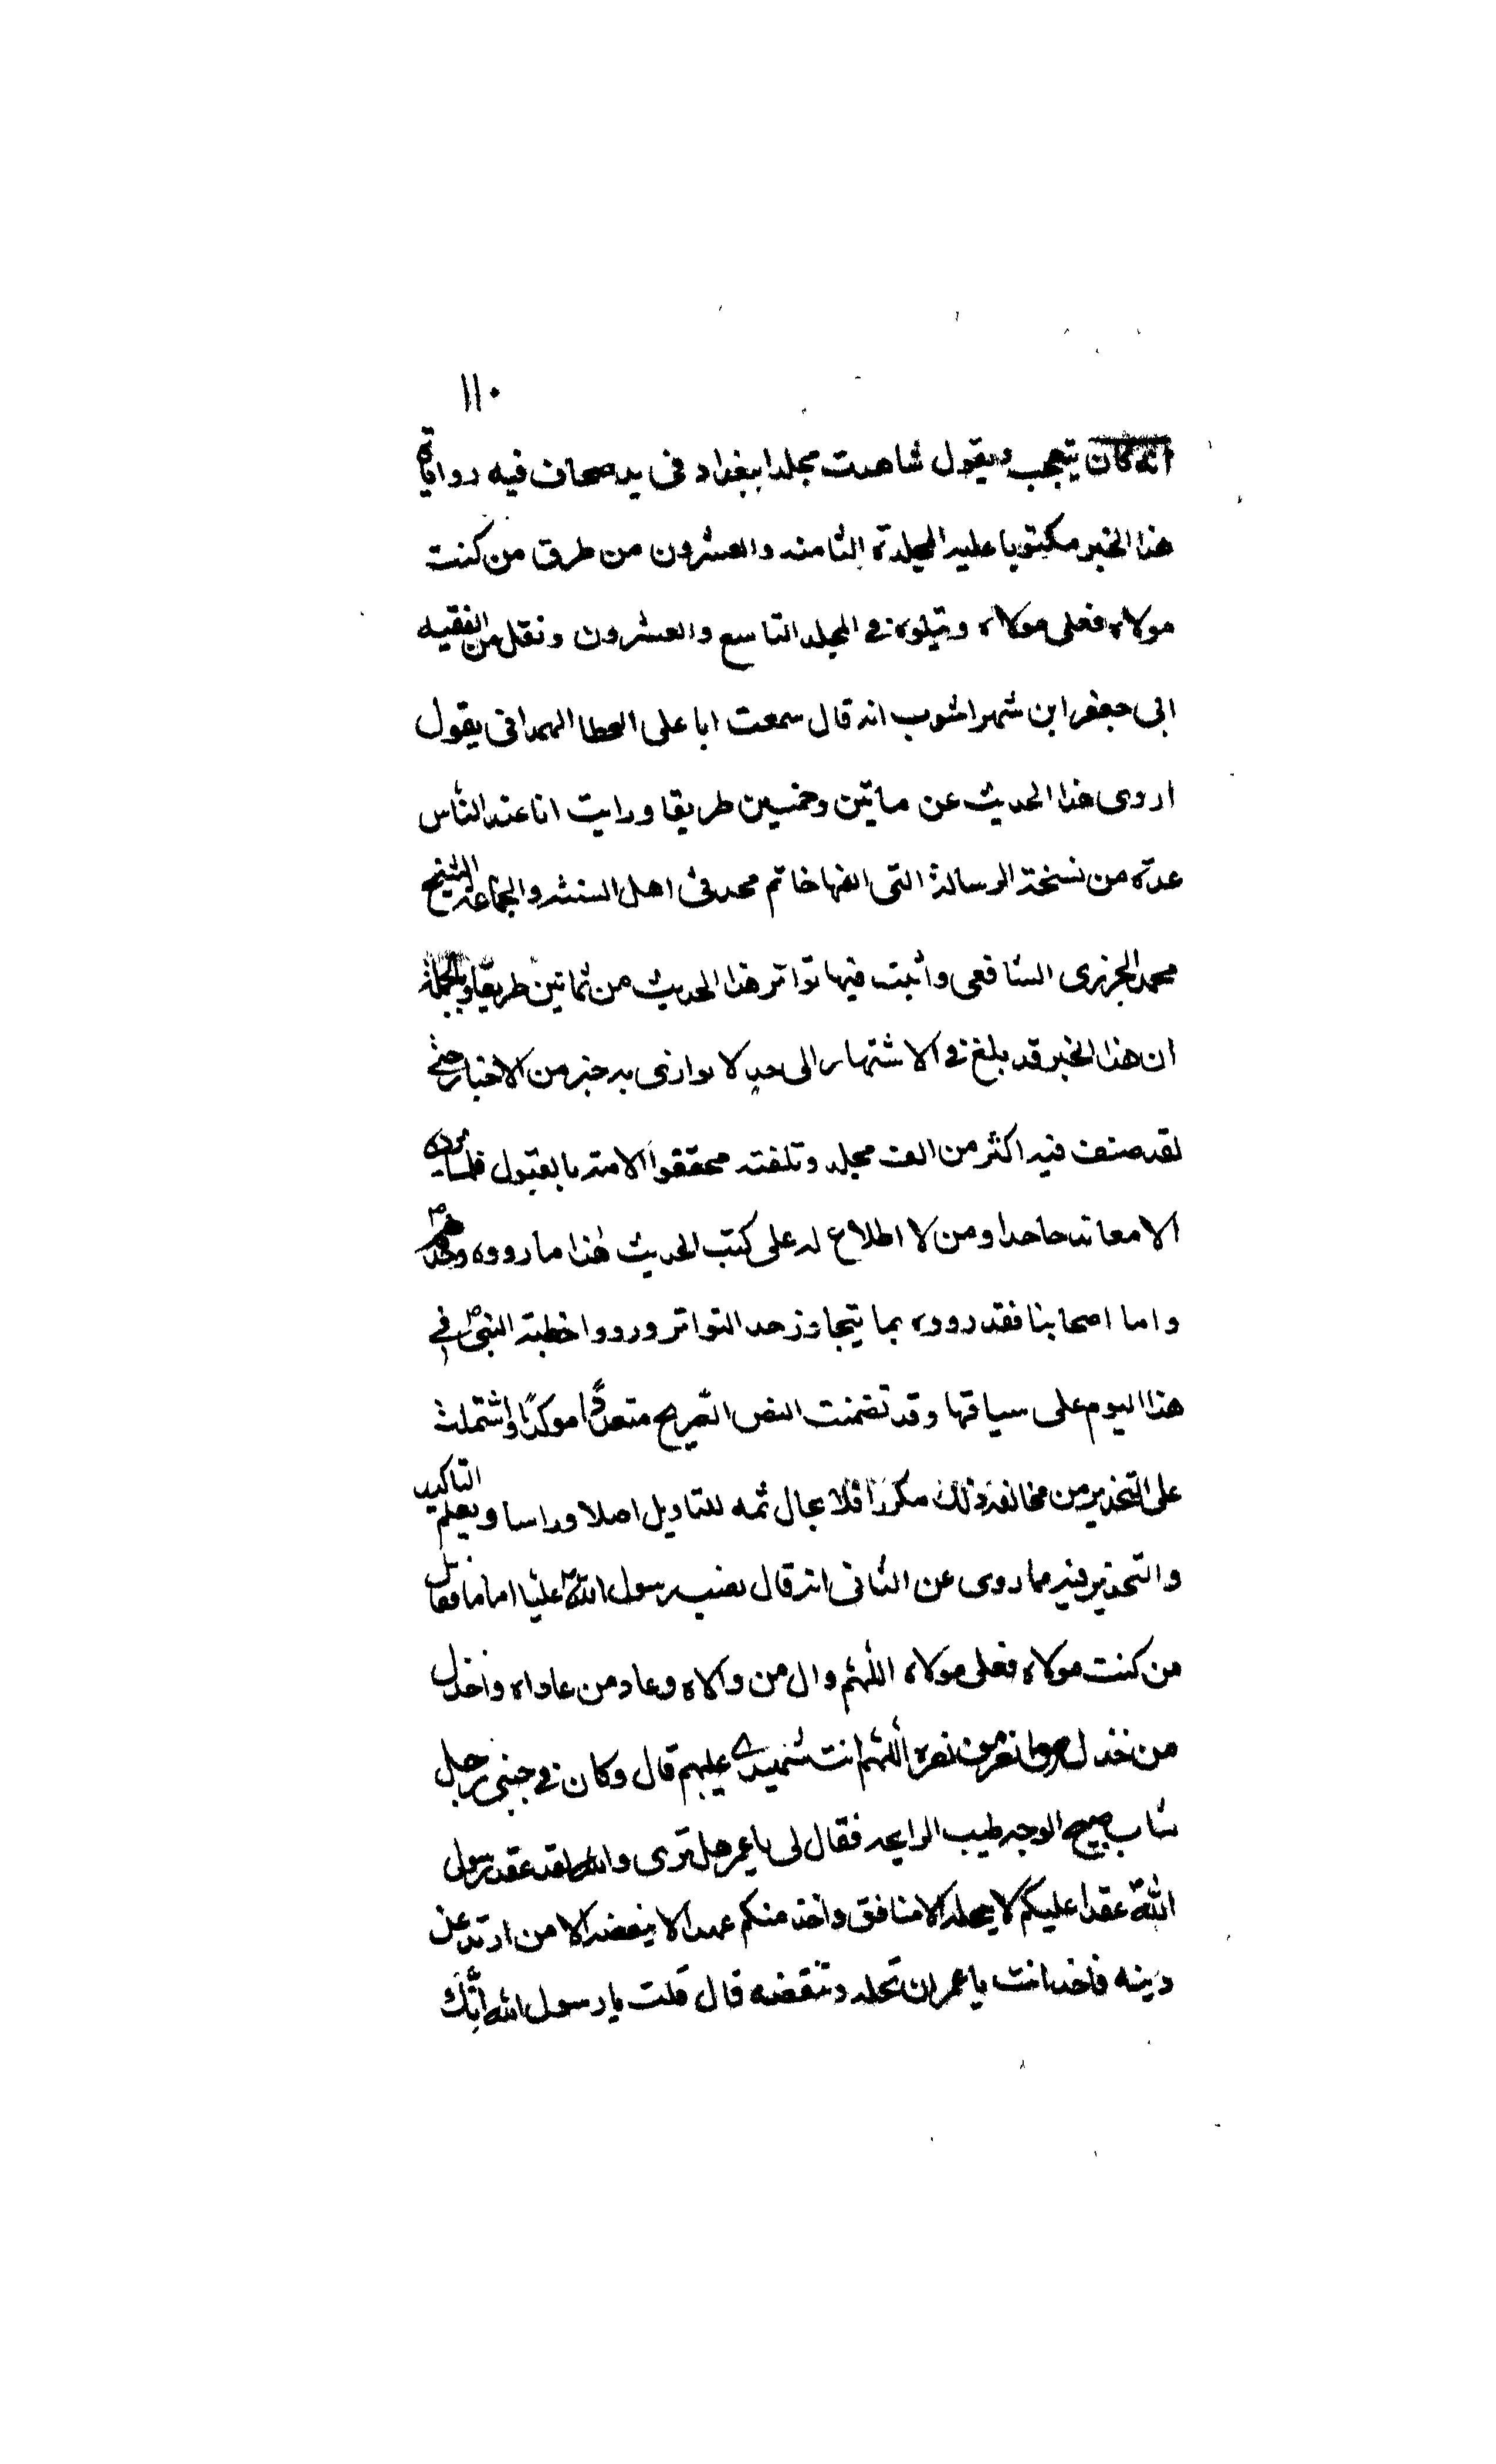 ١١٠
انه كان يتعجب ويقول شاهدت مجلدا ببغداد فى يد صحاف فيه روايات
هذا الخبر مكتوبا عليه المجلدة الثامنه والعشرون من طرق من كنت
مولاه فعلى مولاه ويتلوه فى المجلد التاسع والعشرون ونقل من الفقيه
ابى جعفر ابن شهراشوب انه قال سمعت ابا على العطا الهمدانى يقول
اروى هذا الحديث عن ماتين وخمسين طريقا ورايت انا عند الناس
عدة من نسخة الرسالة التى الفها خاتم محدثى اهل السنة والجماعة الشيخ
محمد الجزرى الشافعى واثبت فيها تواتر هذا الحديث من ثمانين طريقا وبالجملة
ان هذا الخبر قد بلغ فى الاشتهار الى حد لا يوازى به خبر من الاخبار حتى
لقد صنف فيه اكثر من الف مجلد وتلقته محققوا الامة بالقبول فلا يرده
الا معاند جاحد او من لا اطلاع له على كتب الحديث هذا ما رووه
واما اصحابنا فقد رووه بما يتجاوز حد التواتر ورووا خطبة النبى ص فى
هذا اليوم على سياقها وقد تضمنت النص الصريح متعددا موكدا واشتملت
على التحذير من مخالفة ذلك مكررا فلا مجال ثمه للتاويل اصلا وراسا ويعلم التاكيد
والتحذير فيه مما روى عن الثانى انه قال نصب رسول الله ص عليا اماما فقال
من كنت مولاه فعلى مولاه اللهم وال من والاه وعاد من عاداه واخذل
من خذله وانصر من نصره اللهم انت شهيدى عليهم قال وكان فى جنبى رجل
شاب صبيح الوجه طيب الرايحه فقال لى يا عمر هل ترى والله لقد عقد رسول
الله ص عقدا عليكم لا يحله الا منافق واخذ منكم عهدا لا ينقضه الا من ارتد عن
دينه فاحذر انت يا عمر ان تحله وتنقضه قال قلت يا رسول الله انك